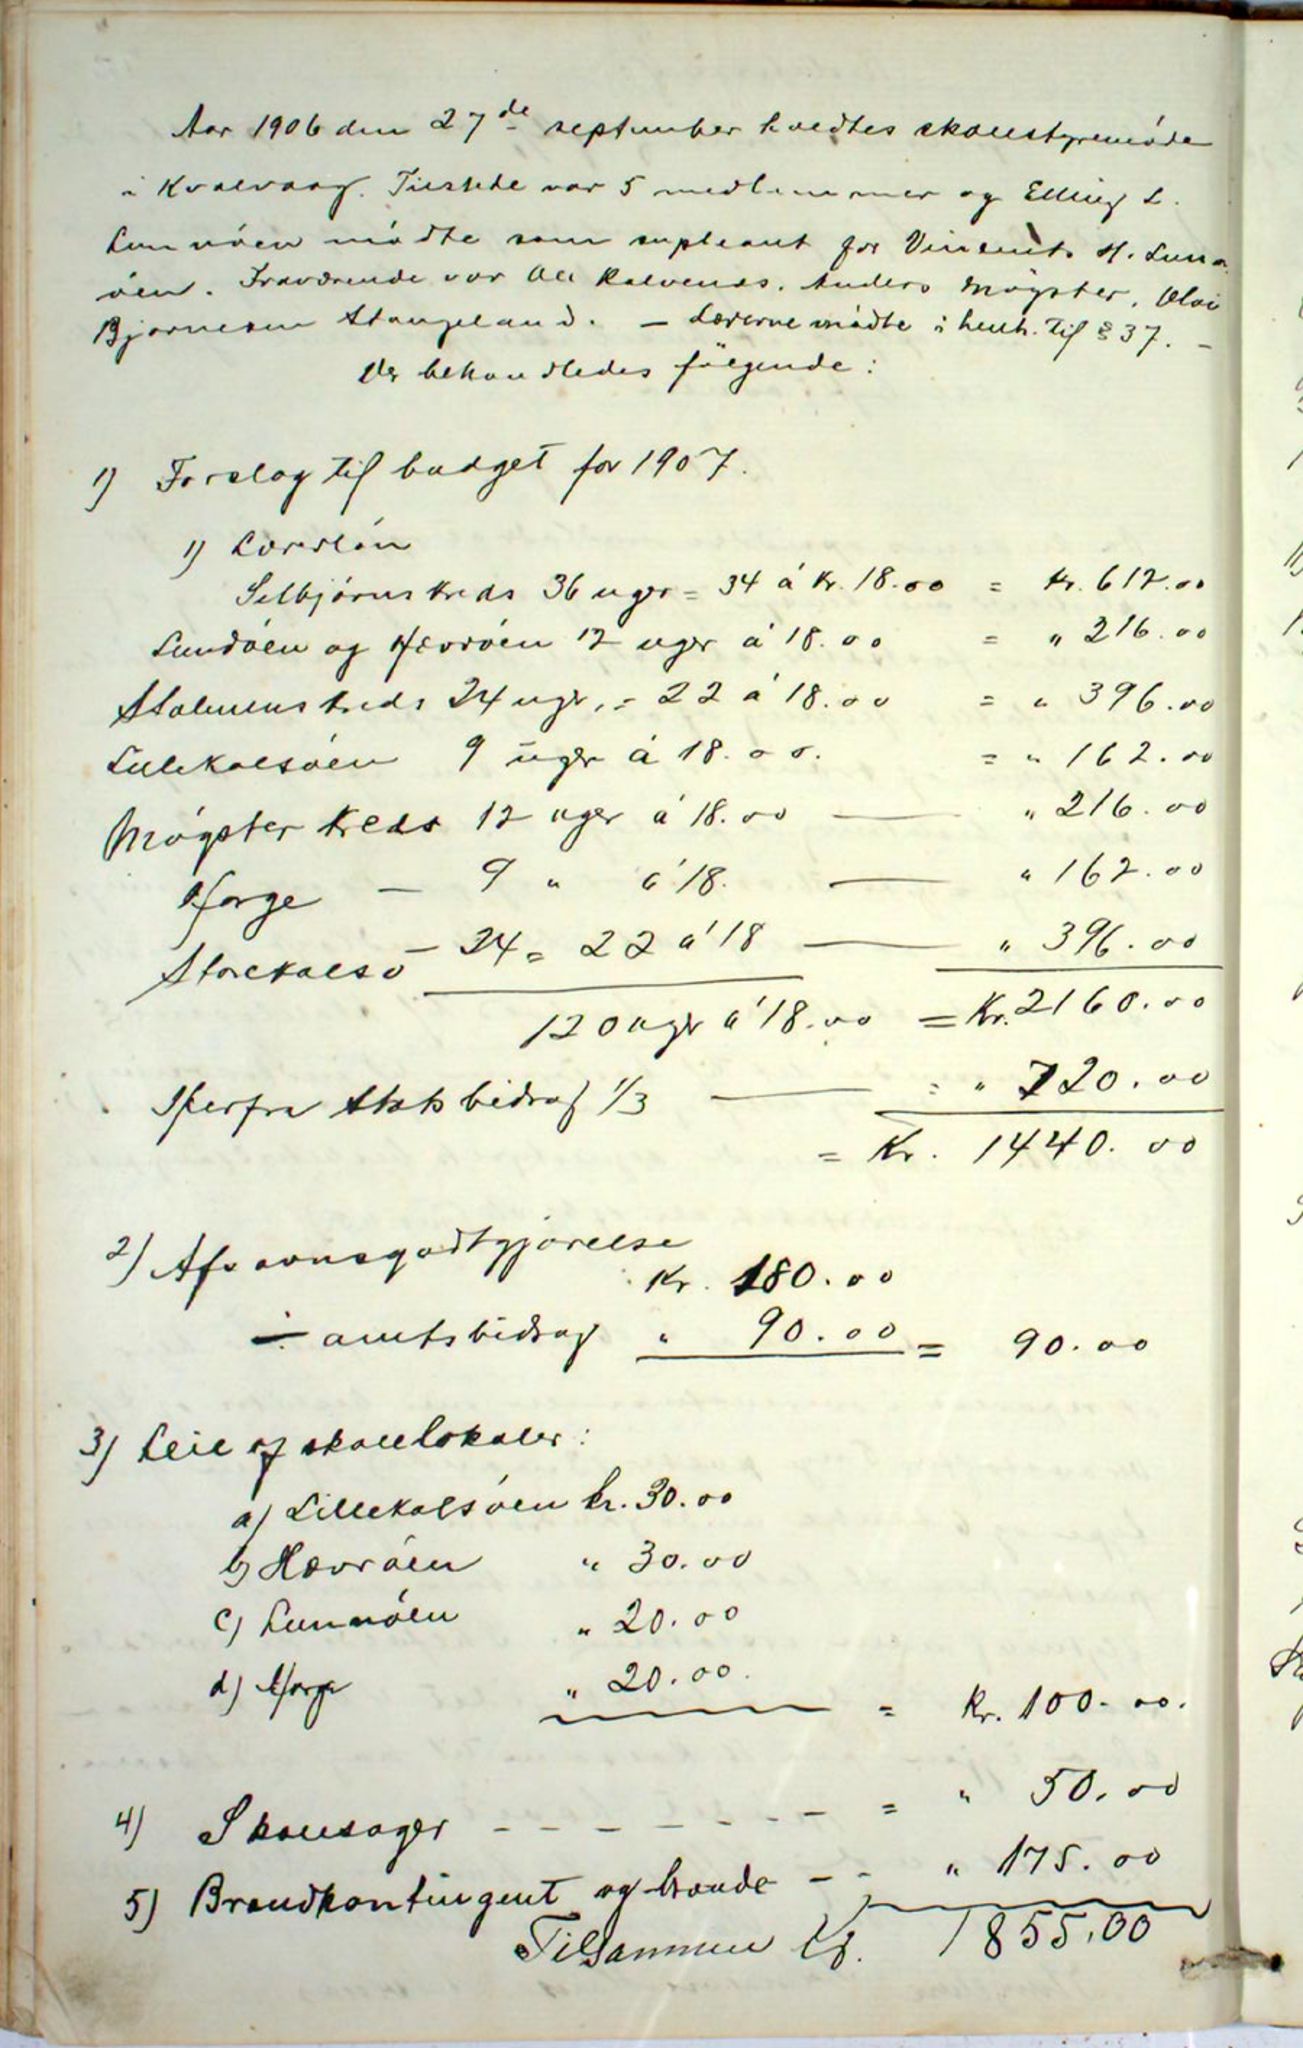 Aar 1906 den 27de september holdtes skolestyremøde
i Kvalvaag. Tilstede var 5 medlemmer og Elling L.
Lunnøen mødte som supleant for Vincents H. Lunn-
øen. Fraværende var Ole Kalvenes, Anders Møgster, Olai
Bjørnesen Stangeland. — Lærerne mødte i henh. til § 37. —
Der behandledes følgende:
1) Forslag til budget for 1907.
1) Lærerløn
Selbjørns kreds 36 uger = 34 á Kr. 18.00 = Kr. 612.00
Lundøen og Hevrøen 12 uger á 18.00 = " 216.00
Stolmens kreds 24 uger, = 22 á 18.00 = " 396.00
Lillekalsøen 9 uger á 18.00. = " 162.00
Møgster kreds 12 uger á 18.00 — " 216.00
Horge — 9 " á 18. — " 162.00
Storekalsø — 24 = 22 á 18 — " 396.00
120 uger á 18.00 = Kr. 2160.00
Herfra Statsbidrag 1/3 — = " 720.00
= Kr. 1440.00
2) Afsavnsgodtgjørelse
Kr. 180.00
÷ amtsbidrag " 90.00 = 90.00
3) Leie af skolelokaler:
a) Lillekalsøen kr. 30.00
b) Hævrøen " 30.00
c) Lunnøen " 20.00
d) Horge " 20.00.
= Kr. 100.00.
4) Skolesager - - - - - - - = " 50.00
5) Brandkontingent og brande - - " 175.00
Tilsammen Kr. 1855.00